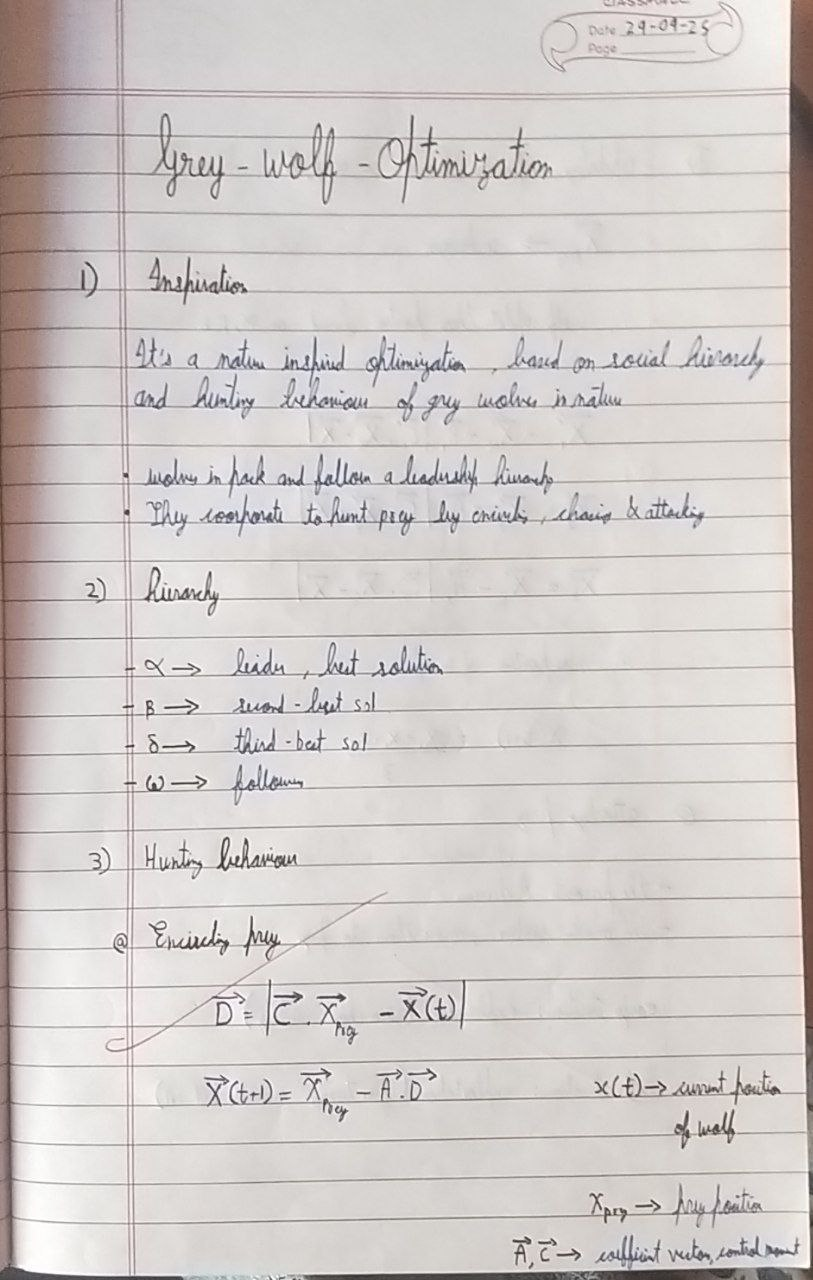 CLASSMATE
Date 29-09-25
Page
Grey - wolf - Optimization
1) Inspiration
It's a nature inspired optimization, based on social hierarchy
and hunting behaviour of grey wolves in nature
• wolves in pack and follow a leadership hierarchy
• They coorporate to hunt prey by encircling, chasing & attacking
2) hierarchy
- α → leader, best solution
- β → second-best sol
- δ → third-best sol
- ω → followers
3) Hunting behaviour
@ Encircling prey
D⃗ = |C⃗ . X⃗prey - X⃗(t)|
X⃗(t+1) = X⃗prey - A⃗ . D⃗
x(t) → current position
of wolf
Xprey → prey position
A⃗, C⃗ → coefficient vectors, control movement